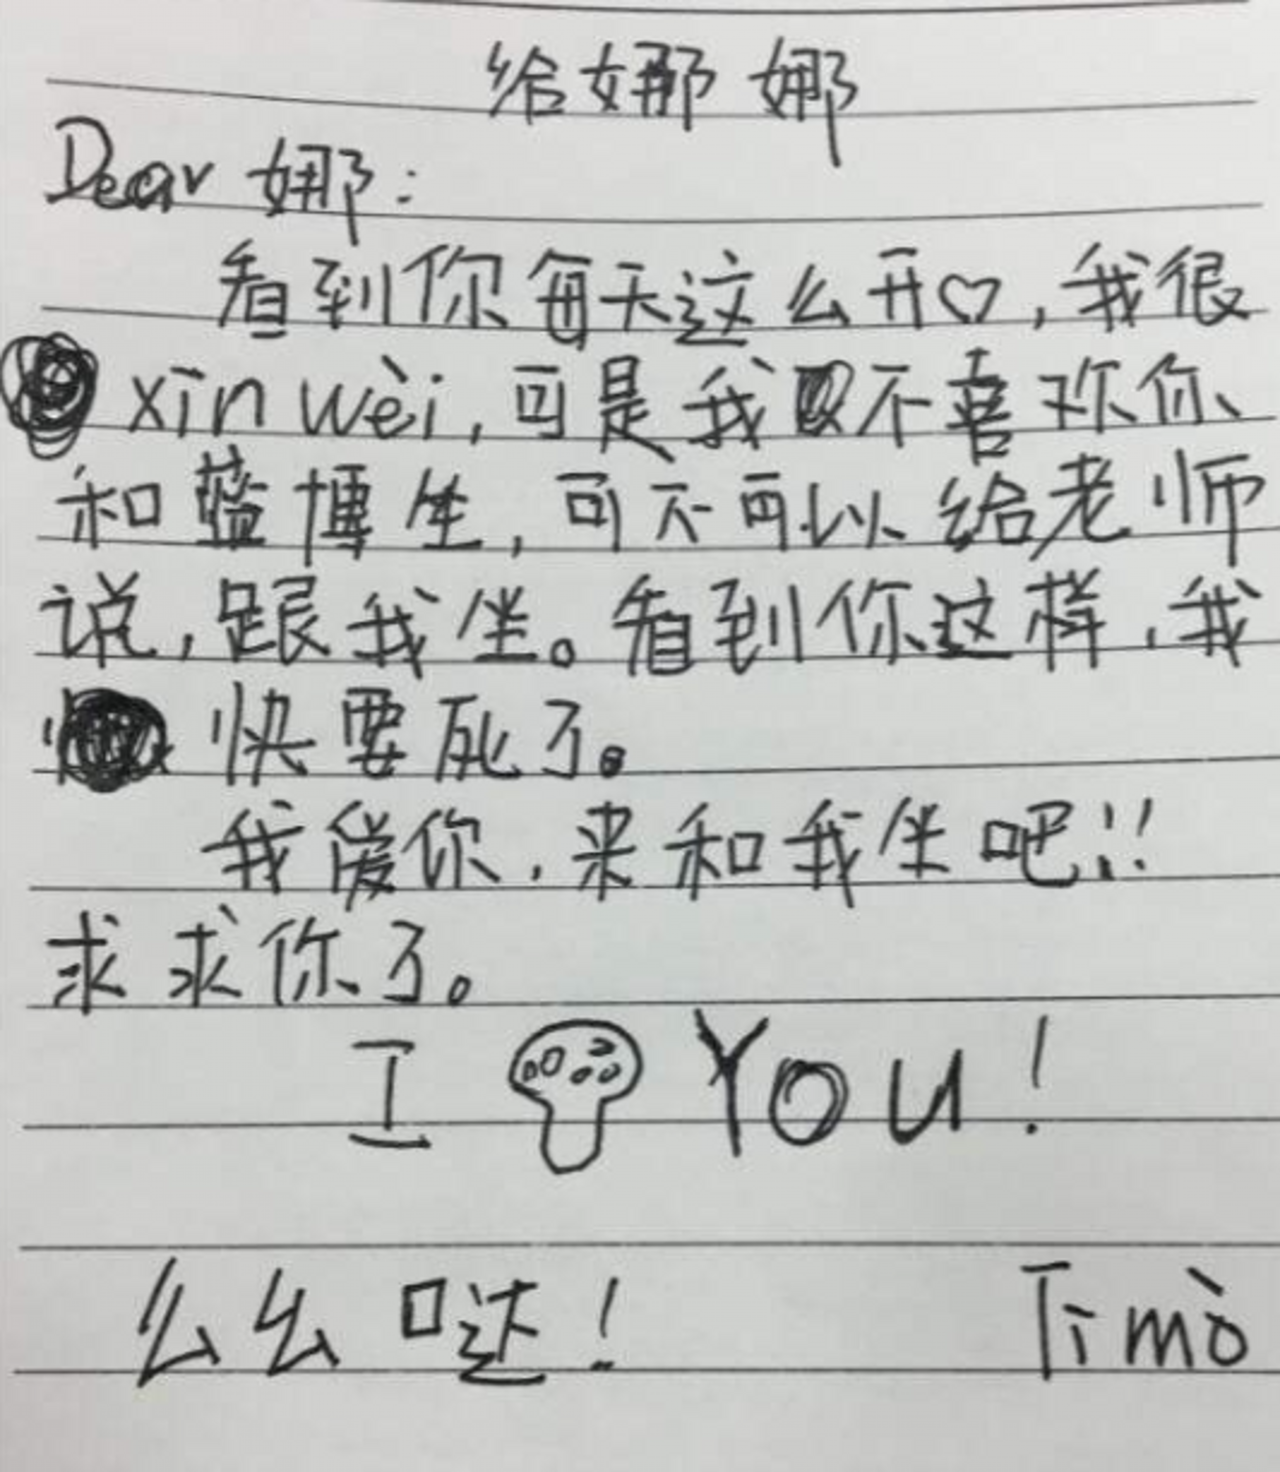 给娜娜
Dear 娜：
看到你每天这么开♡，我很
xīn wèi，可是我不喜欢你
和蓝博坐，可不可以给老师
说，跟我坐。看到你这样，我
快要死了。
我爱你，来和我坐吧!!
求求你了。
I You!
么么哒!
Tímò